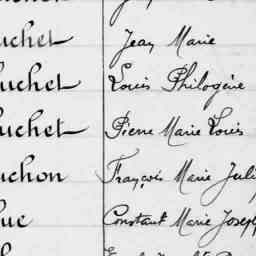 uchet Jean Marie
uchet Louis Philogène
uchet Pierre Marie Louis
uchon François Marie Juli
ue Constant Marie Joseph